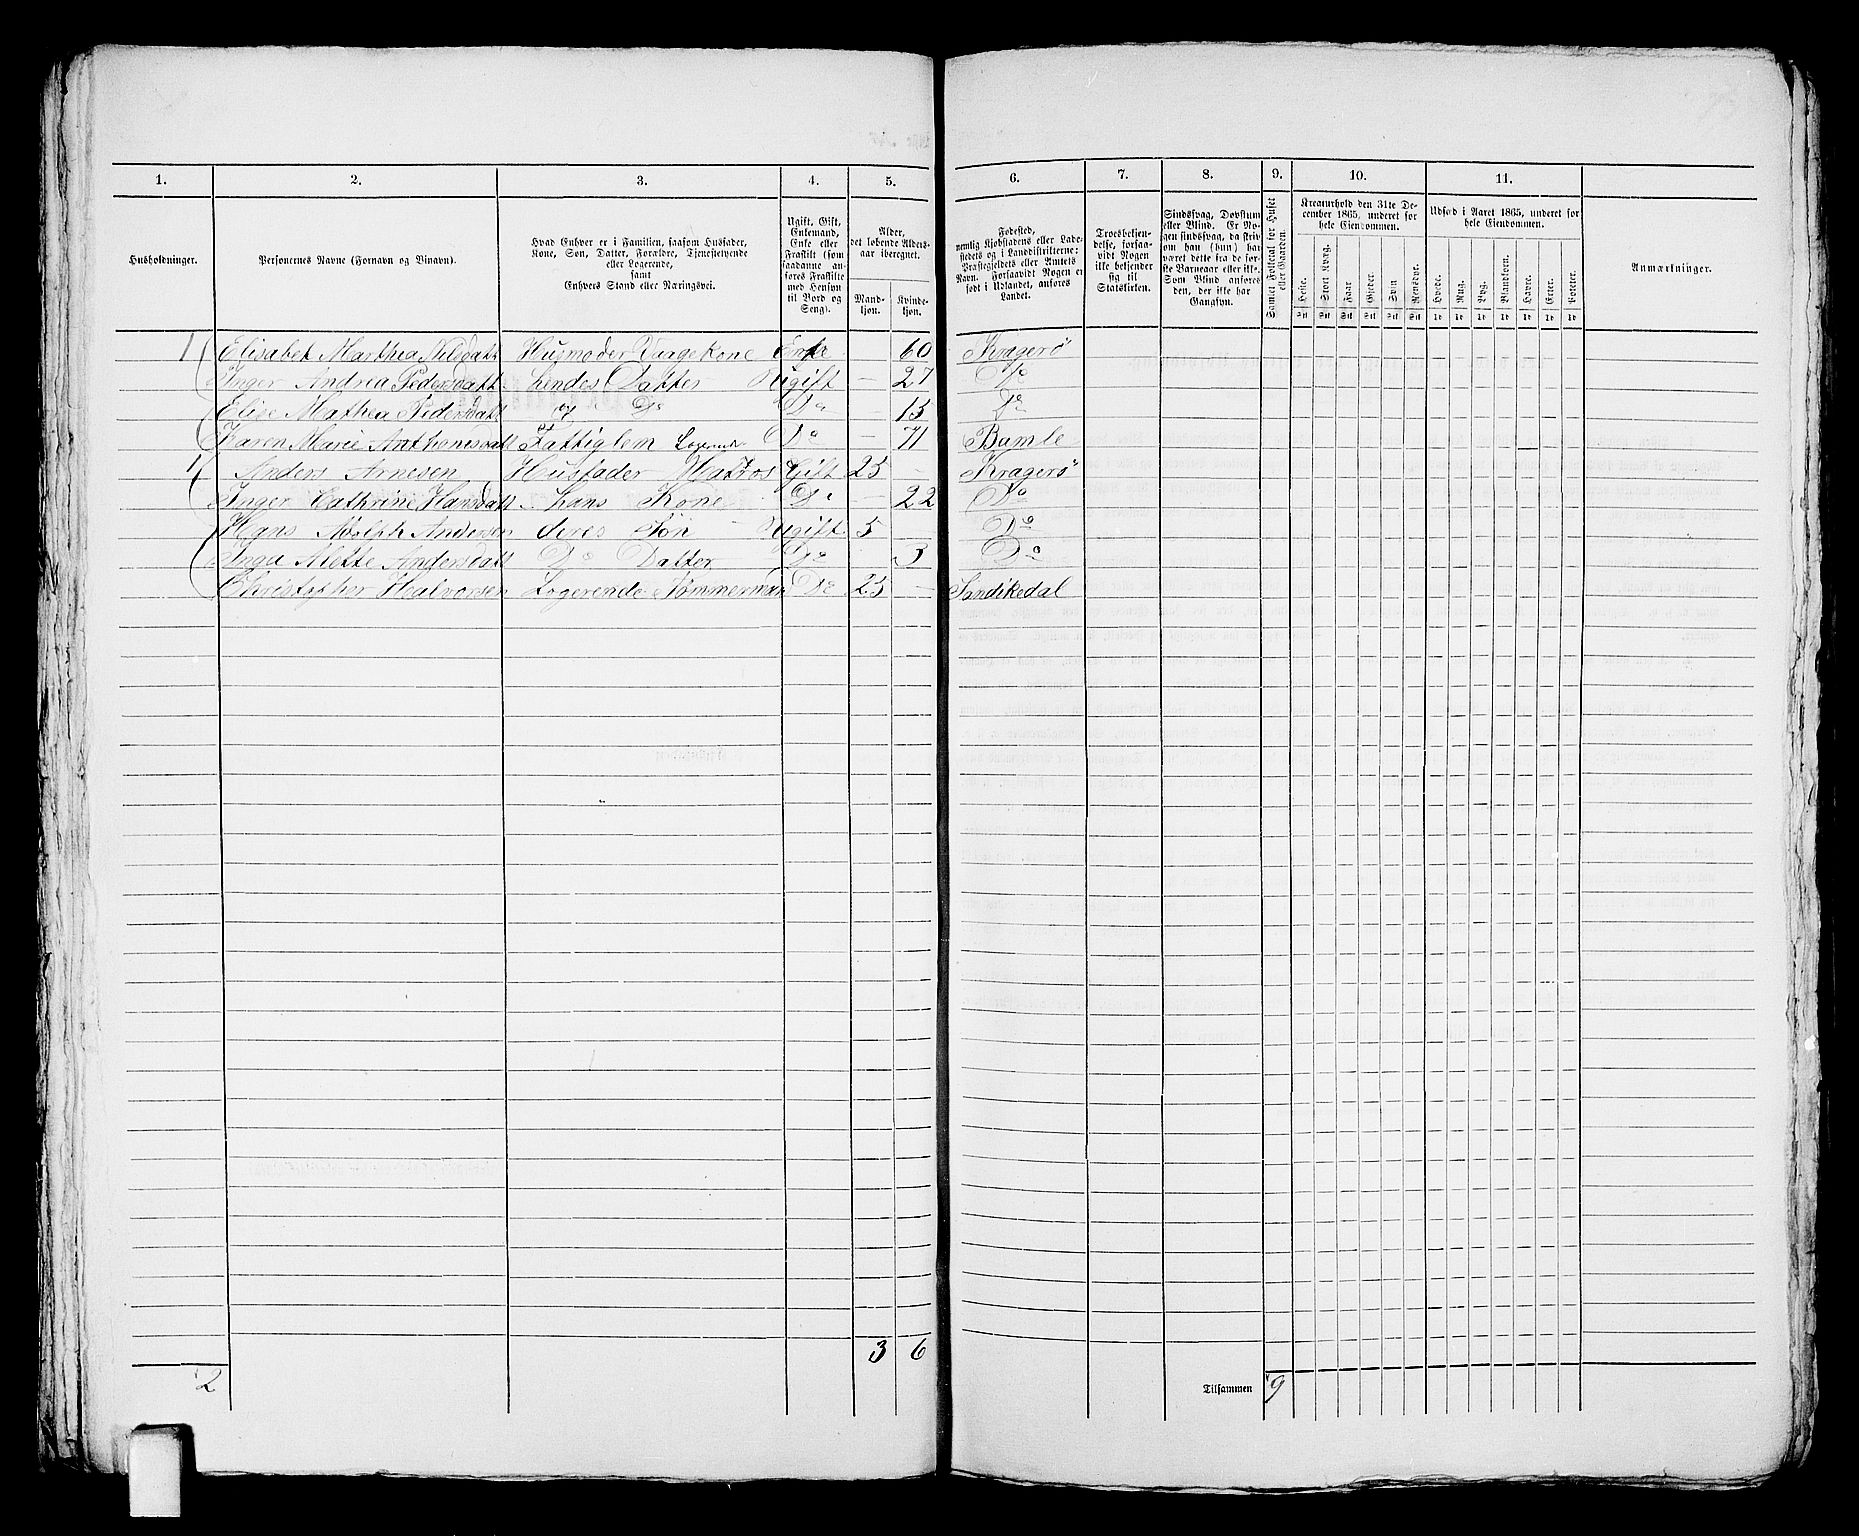 1. 2. 3. 4. 5. 6. 7. 8. 9. 10. 11.
Husholdninger.
Personernes Navne (Fornavn og Binavn).
Hvad Enhver er i Familien, saasom Husfader,
Kone, Søn, Datter, Forældre, Tjenestetyende
eller Logerende,
samt
Enhvers Stand eller Næringsvei.
Ugift, Gift,
Enkemand,
Enke eller
Fraskilt (som
saadanne an-
føres Fraskilte
med Hensyn
til Bord og
Seng).
Alder,
det løbende Alders-
aar iberegnet.
Mand-
kjøn.
Kvinde-
kjøn.
Fødested,
nemlig Kjøbstadens eller Lade-
stedets og i Landdistrikterne:
Præstegjeldets eller Amtets
Navn. Forsaavidt Nogen er
født i Udlandet, anføres
Landet.
Troesbekjen-
delse, forsaa-
vidt Nogen
ikke bekjender
sig til
Statskirken.
Sindssvag, Døvstum
eller Blind. Er No-
gen sindssvag, da skriv
om han (hun) har
været dette fra de før-
ste Barneaar eller ikke.
Som Blind anføres
den, der ikke har
Gangsyn.
Samlet Folketal for Huset
eller Gaarden.
Kreaturhold den 31te De-
cember 1865, underet for
hele Eiendommen.
Heste. Stort Kvæg. Faar. Gjeder. Svin Rensdyr.
Stk Stk Stk Stk Stk Stk
Udsæd i Aaret 1865, underet for
hele Eiendommen.
Hvede. Rug. Byg. Blandkorn. Havre. Erter. Poteter.
Td Td Td Td Td Td Td
Anmærkninger.
1 Elisabet Marthea Nilsdatt Husmoder Vaagekone Enke 60 Kragerø
Inger Andrea Pedersdatt hendes Datter Ugift — 27 Do
Elise Mathea Pedersdatt og Do Do — 13 Do
Karen Marie Anthonisdatt Fattiglem Logerende Do — 71 Bamle
1 Anders Arnesen Husfader Matros Gift 25 — Kragerø
Inger Cathrine Hansdatt hans Kone Do — 22 Do
Hans Adolph Andersen deres Søn Ugift 5 Do
Inga Alette Andersdatt Do Datter Do 3 Do
Christopher Halvorsen Logerende Tømmermand Do 25 — Sandikedal
3 6
2
Tilsammen 9